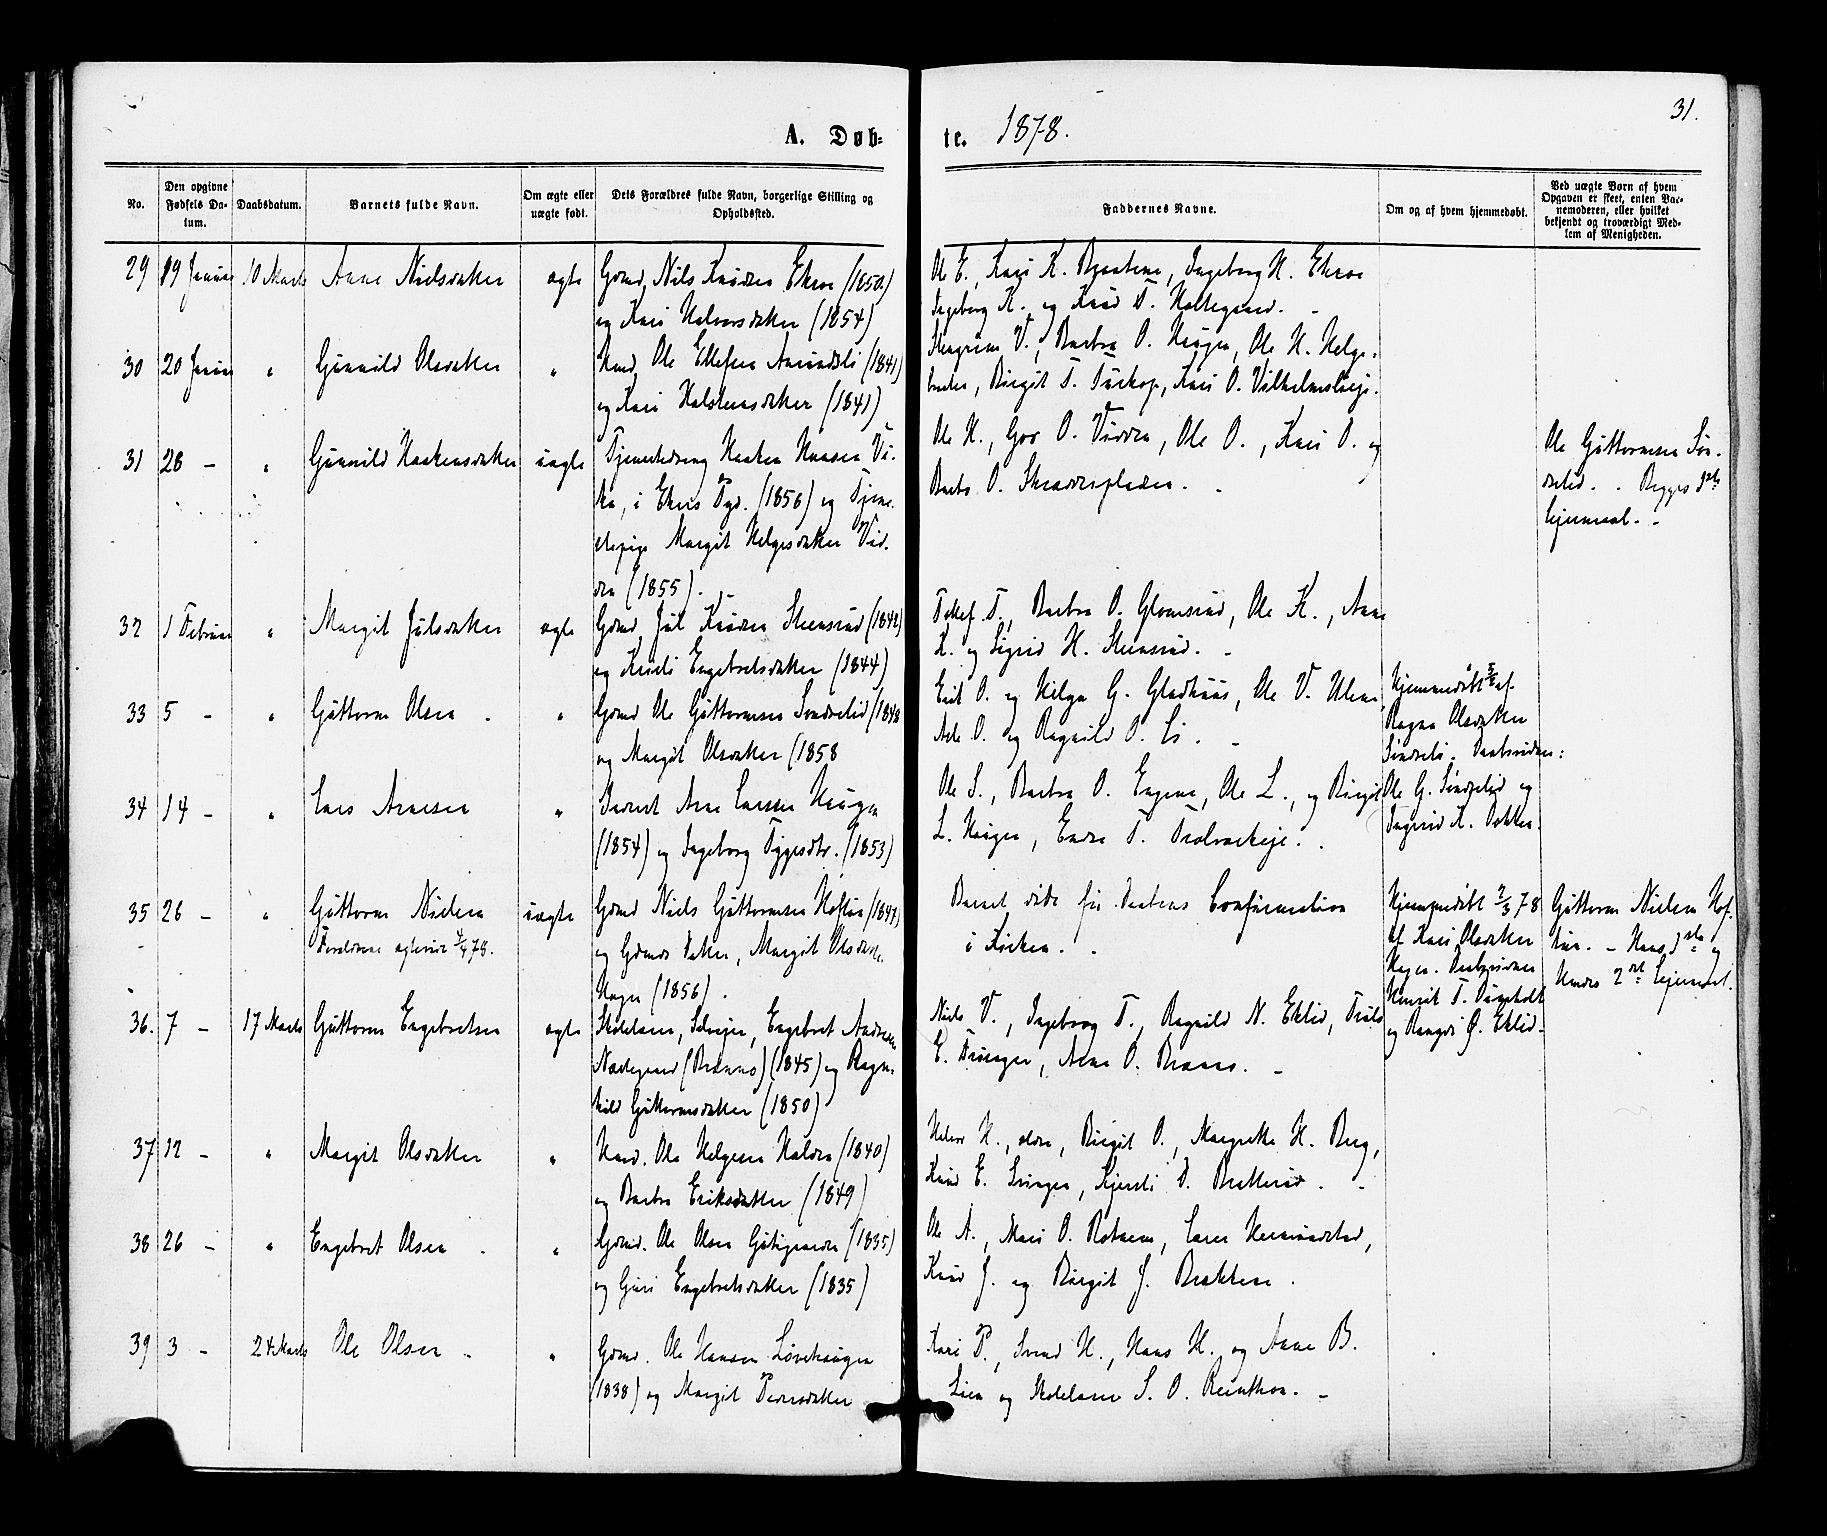 31.
A. Døb-
te. 1878.
No.
Den opgivne Fødsels Da-
tum.
Daabsdatum.
Barnets fulde Navn.
Om ægte eller
uægte født.
Dets Forældres fulde Navn, borgerlige Stilling og
Opholdssted.
Faddernes Navne.
Om og af hvem hjemmedøbt.
Ved uægte Børn af hvem
Opgaven er skeet, enten Bar-
nemoderen, eller hvilket
bekjendt og troværdigt Med-
lem af Menigheden.
29 19 Januar 10 Marts Anne Nielsdatter ægte Gbmd Nils Knudsen Ekroe (1850)
og Kari Halvorsdatter (1854)
Ole E., Kari K. Braatene, Ingeborg H. Ekroe
Ingeborg K. og Knud T. Haltegaard.
30 20 Januar " Gunnild Olsdatter " Huusmd. Ole Ellefsen Amundsli (1841)
og Kari Halstensdatter (1841)
V., Barbra O. Haugen, Ole H. Helge-
, Birgit T. , Kari O.
31 28 – " Gunnild Haakensdatter uægte Tjenestedreng Haaken Hansen Vi-
ka, i Ekers Pgd. (1856) og Tjene-
stepige Margit Helgesdatter Vid-
den (1855).
Ole H., Gro O. Vidden, Ole O., Kari O. og
Barbr. O. Skradderpladsen.
Ole Guttormsen Søn-
drelid. . Begges 1ste
Leiermaal. -
32 1 Februar " Margit Julsdatter ægte Gbmd Jul Knudsen Steensrud (1842)
og Kristi Engebretsdatter (1844)
Tollef T., Barbra O. Glomsrud, Ole K., Anne
K. og Sigrid H. Steensrud. -
33 5 – " Guttorm Olsen - " Gbmd Ole Guttormsen Søndrelid (1848
og Margit Olsdatter (1858
Erik O. og Helga G. Gladhuus, Ole V. ,
O. og Ragnild O. Li. -
Hjemmedøbt af
Ragna Olsdatter
Søndreli. Daabsvidner:
Ole G. Søndrelid og
Ingerid K. Dokken.
34 14 – " Lars Arnesen " Inderst Arne Larsen Haugen
(1854) og Ingeborg Tyggesdtr. (1853)
Ole S., Barbra O. Engene, Ole L., og Birgit
L. Haugen, Endre T.
35 26 – " Guttorm Nielsen uægte Gbmd Niels Guttormsen Hoftun (1847)
Forældrene ægteviet 4/4 78. og Gbmds Datter, Margit Olsdatter
Hagen (1856).
Barnet døde før Daabens Confirmation
i Kirken. .
Hjemmedøbt 2/3 78
af Kari Olsdatter
Hagen. Daabsvidner
T.
og Rangdi O. Eklid.
Guttorm Nielsen Hof-
tun. – Hans 3die og
Hendes 2det Leiermaal.
36. 7 – 17 Marts Guttorm Engebretsen ægte Skolelærer, Selveier, Engebret Andersen
Næslegaard (Braanaas) (1845) og Ragn-
hild Guttormsdatter (1850)
Niels V., Ingeborg T., Ragnild N. Eklid, Truls
E. , Arne O.
37 12 – " Margit Olsdatter " Huusmd. Ole Helgesen Halden (1840)
og Barbra Eriksdatter (1849)
Helene H., ældre, Birgit O., Margrethe H. Berg,
Knud E. Svingen, Kjersti O. Bratterud. -
38 26 – " Engebret Olsen - " Gbmd. Ole Olsen (1835)
og Guri Engebretsdatter (1835)
Ole A., Mari O. Rotnem, Lars ,
Knud J. og Birgit J. Brattene.
39 3 – 24 Marts Ole Olsen - " Gbmd. Ole Hansen Løvehaugen
(1838) og Margit Pedersdatter
Kari P., Svend H., Hans H. og Anne B.
Lien og Skolelærer S. O. . -